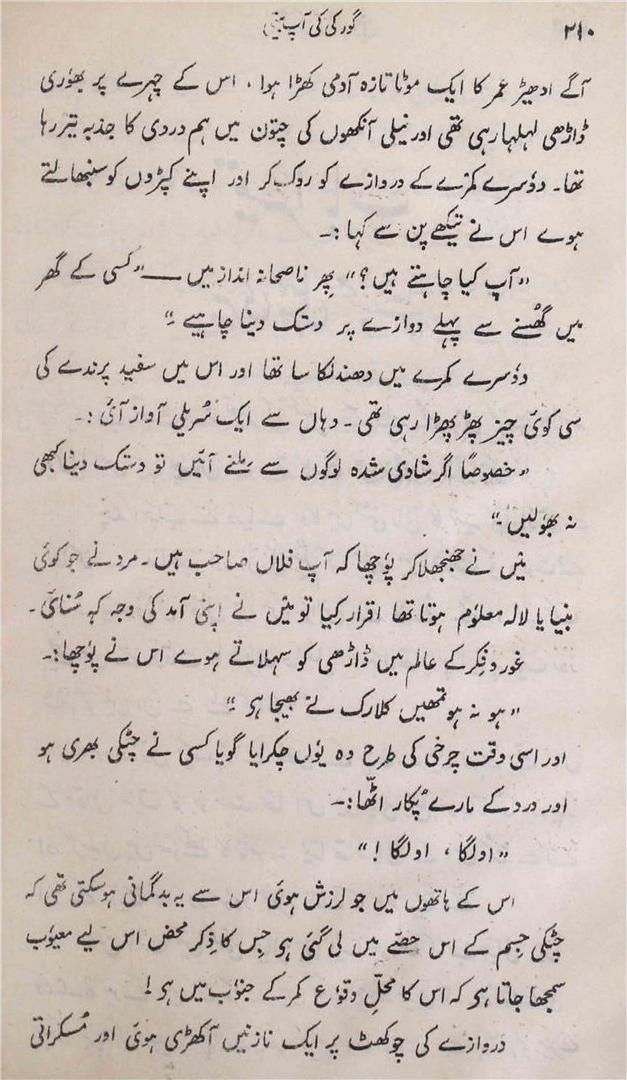 ۲۱۰
گورکی کی آپ بیتی
آگے ادھیڑ عمر کا ایک موٹا تازہ آدمی کھڑا ہوا ، اس کے چہرے پر بھوٗری
ڈاڑھی لہلہا رہی تھی اور نیلی آنکھوں کی چتون میں ہم دردی کا جذبہ تیر رہا
تھا۔ دوٗسرے کمرے کے دروازے کو روک کر اور اپنے کپڑوں کو سنبھالتے
ہوے اس نے تیکھے پن سے کہا :۔
”آپ کیا چاہتے ہیں؟“ پھر ناصحانہ انداز میں — ”کسی کے گھر
میں گھُسنے سے پہلے دوازے پر دستک دینا چاہیے ۔“
دوٗسرے کمرے میں دھندلکا سا تھا اور اس میں سفید پرندے کی
سی کوئ چیز پھڑ پھڑا رہی تھی ۔ وہاں سے ایک سُریلی آواز آئ :۔
”خصوصاً اگر شادی شدہ لوگوں سے ملنے آئیں تو دستک دینا کبھی
نہ بھوٗلیں ۔“
میٔں نے جھنجھلا کر پوٗچھا کہ آپ فلاں صاحب ہیں ۔ مرد نے جو کوئ
بنیا یا لالہ معلوٗم ہوتا تھا اقرار کیا تو میٔں نے اپنی آمد کی وجہ کہ سُنائ ۔
غور و فکر کے عالم میں ڈاڑھی کو سہلاتے ہوے اس نے پوٗچھا :۔
”ہو نہ ہو تمھیں کلارک نے بھیجا ہو ۔“
اور اسی وقت چرخی کی طرح وہ یوٗں چکرایا گویا کسی نے چٹکی بھری ہو
اور درد کے مارے پُکار اٹھّا :۔
”اولگا ، اولگا !“
اس کے ہاتھوں میں جو لرزش ہوئ اس سے یہ بدگمانی ہوسکتی تھی کہ
چٹکی جسم کے اس حصّے میں لی گئی ہو جس کا ذِکر محض اس لیے معیوٗب
سمجھا جاتا ہو کہ اس کا محلّ وقوٗع کمر کے جنوٗب میں ہو !
دروازے کی چوکھٹ پر ایک نازنیں آکھڑی ہوئ اور مُسکراتی